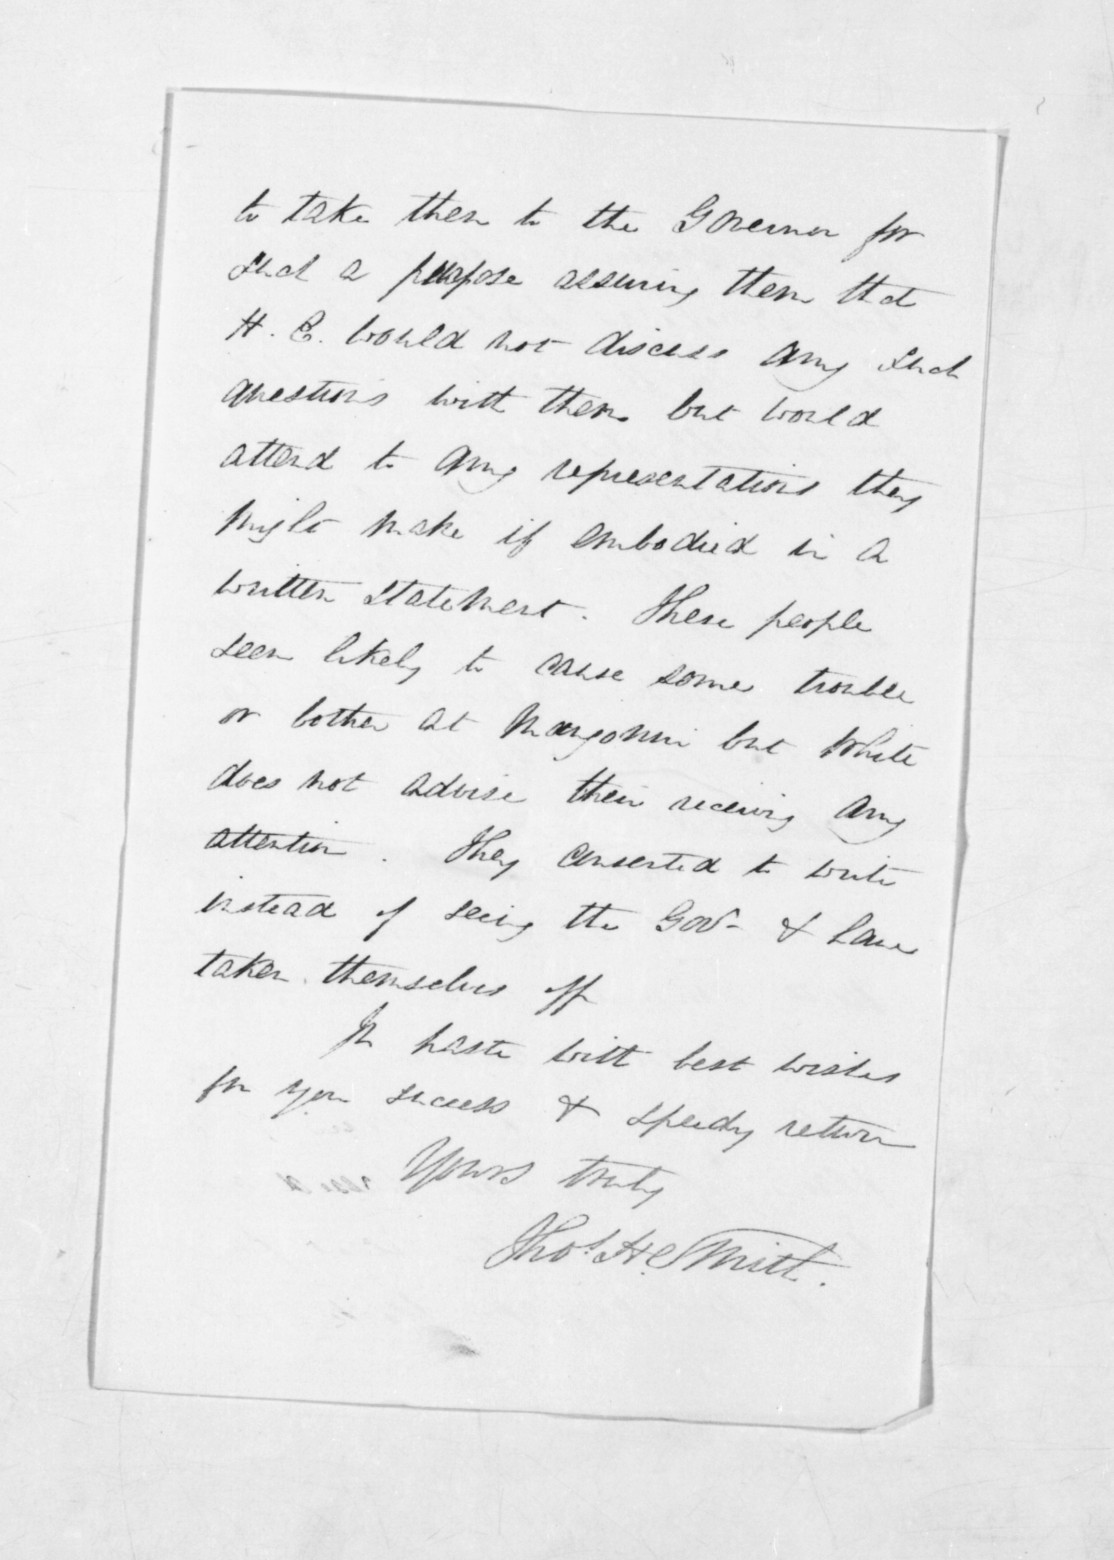 to take them to the Governor for
such a purpose assuring them that
H. E. would not discuss any such
questions with them but would
attend to any representations they
might make if embodied in a
written statement. These people
seem likely to cause some trouble
or bother at Mangonui but White
does not advise their receiving any
attention. They consented to write
instead of seeing the Govr & have
taken themselves off
In haste with best wishes
for your success & speedy return
Yours truly
Thos. H. Smith.